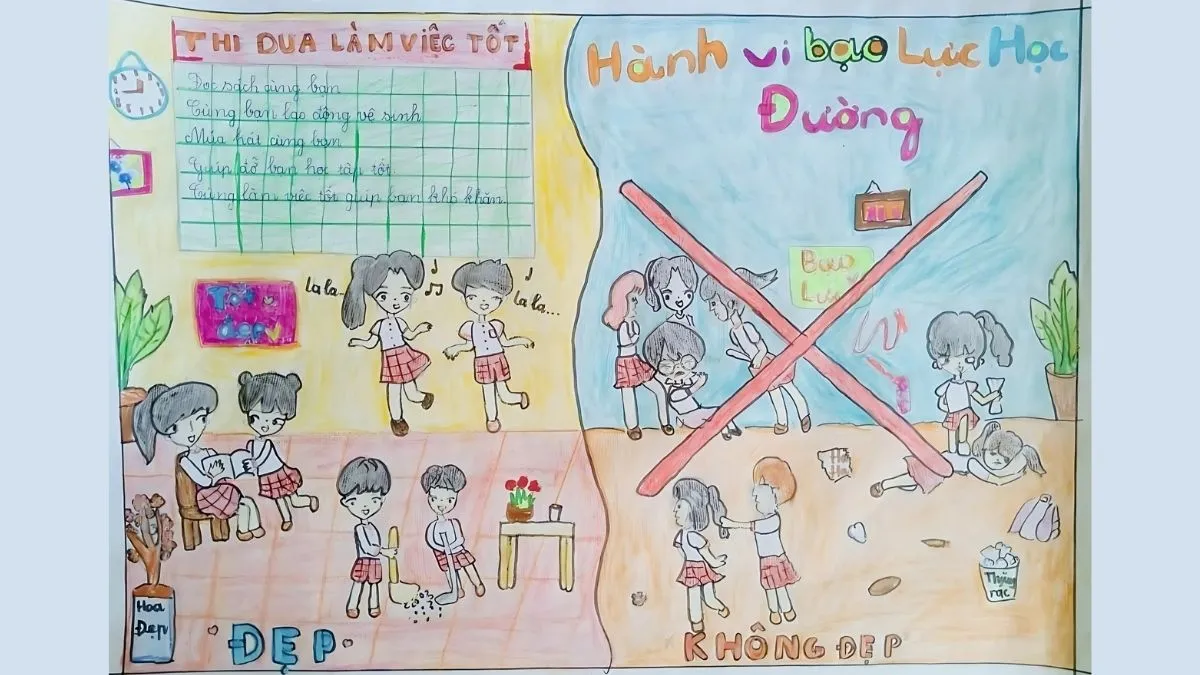 THI DUA LÀM VIỆC TỐT
Đọc sách cùng bạn
Cùng bạn lao động vệ sinh
Múa hát cùng bạn
Giúp đỡ bạn học tập tốt
Cùng làm việc tốt giúp bạn khó khăn.
Tốt
đẹp
la la...
la la...
Hoa
Đẹp
ĐẸP
Hành vi bạo Lực Học
Đường
Bạo
Lực
Thùng
rác
KHÔNG ĐẸP